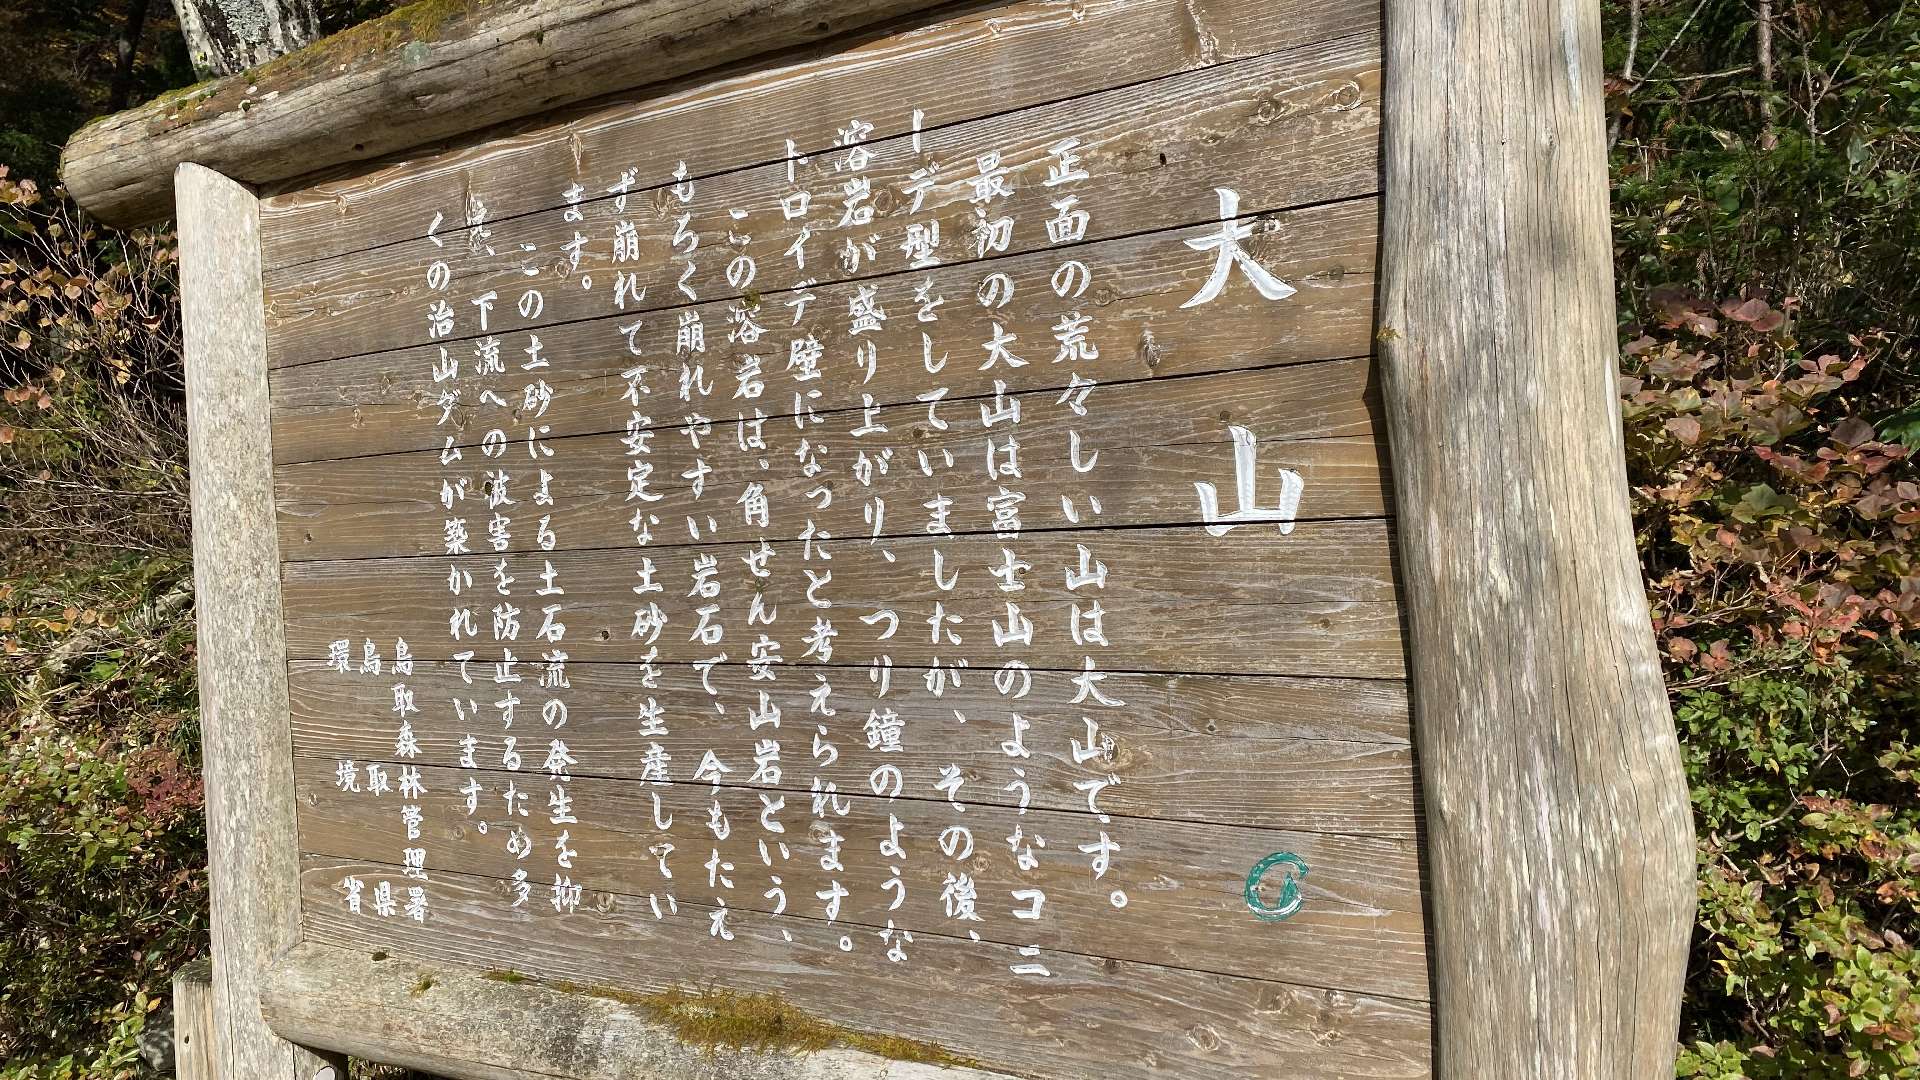 大山
正面の荒々しい山は大山です。
最初の大山は富士山のようなコニ
ーデ型をしていましたが、その後、
溶岩が盛り上がり、つり鐘のような
トロイデ壁になったと考えられます。
この溶岩は、角せん安山岩という、
もろく崩れやすい岩石で、今もたえ
ず崩れて不安定な土砂を生産してい
ます。
この土砂による土石流の発生を抑
え、下流への波害を防止するため多
くの治山ダムが築かれています。
鳥取森林管理署
鳥取県
環境省